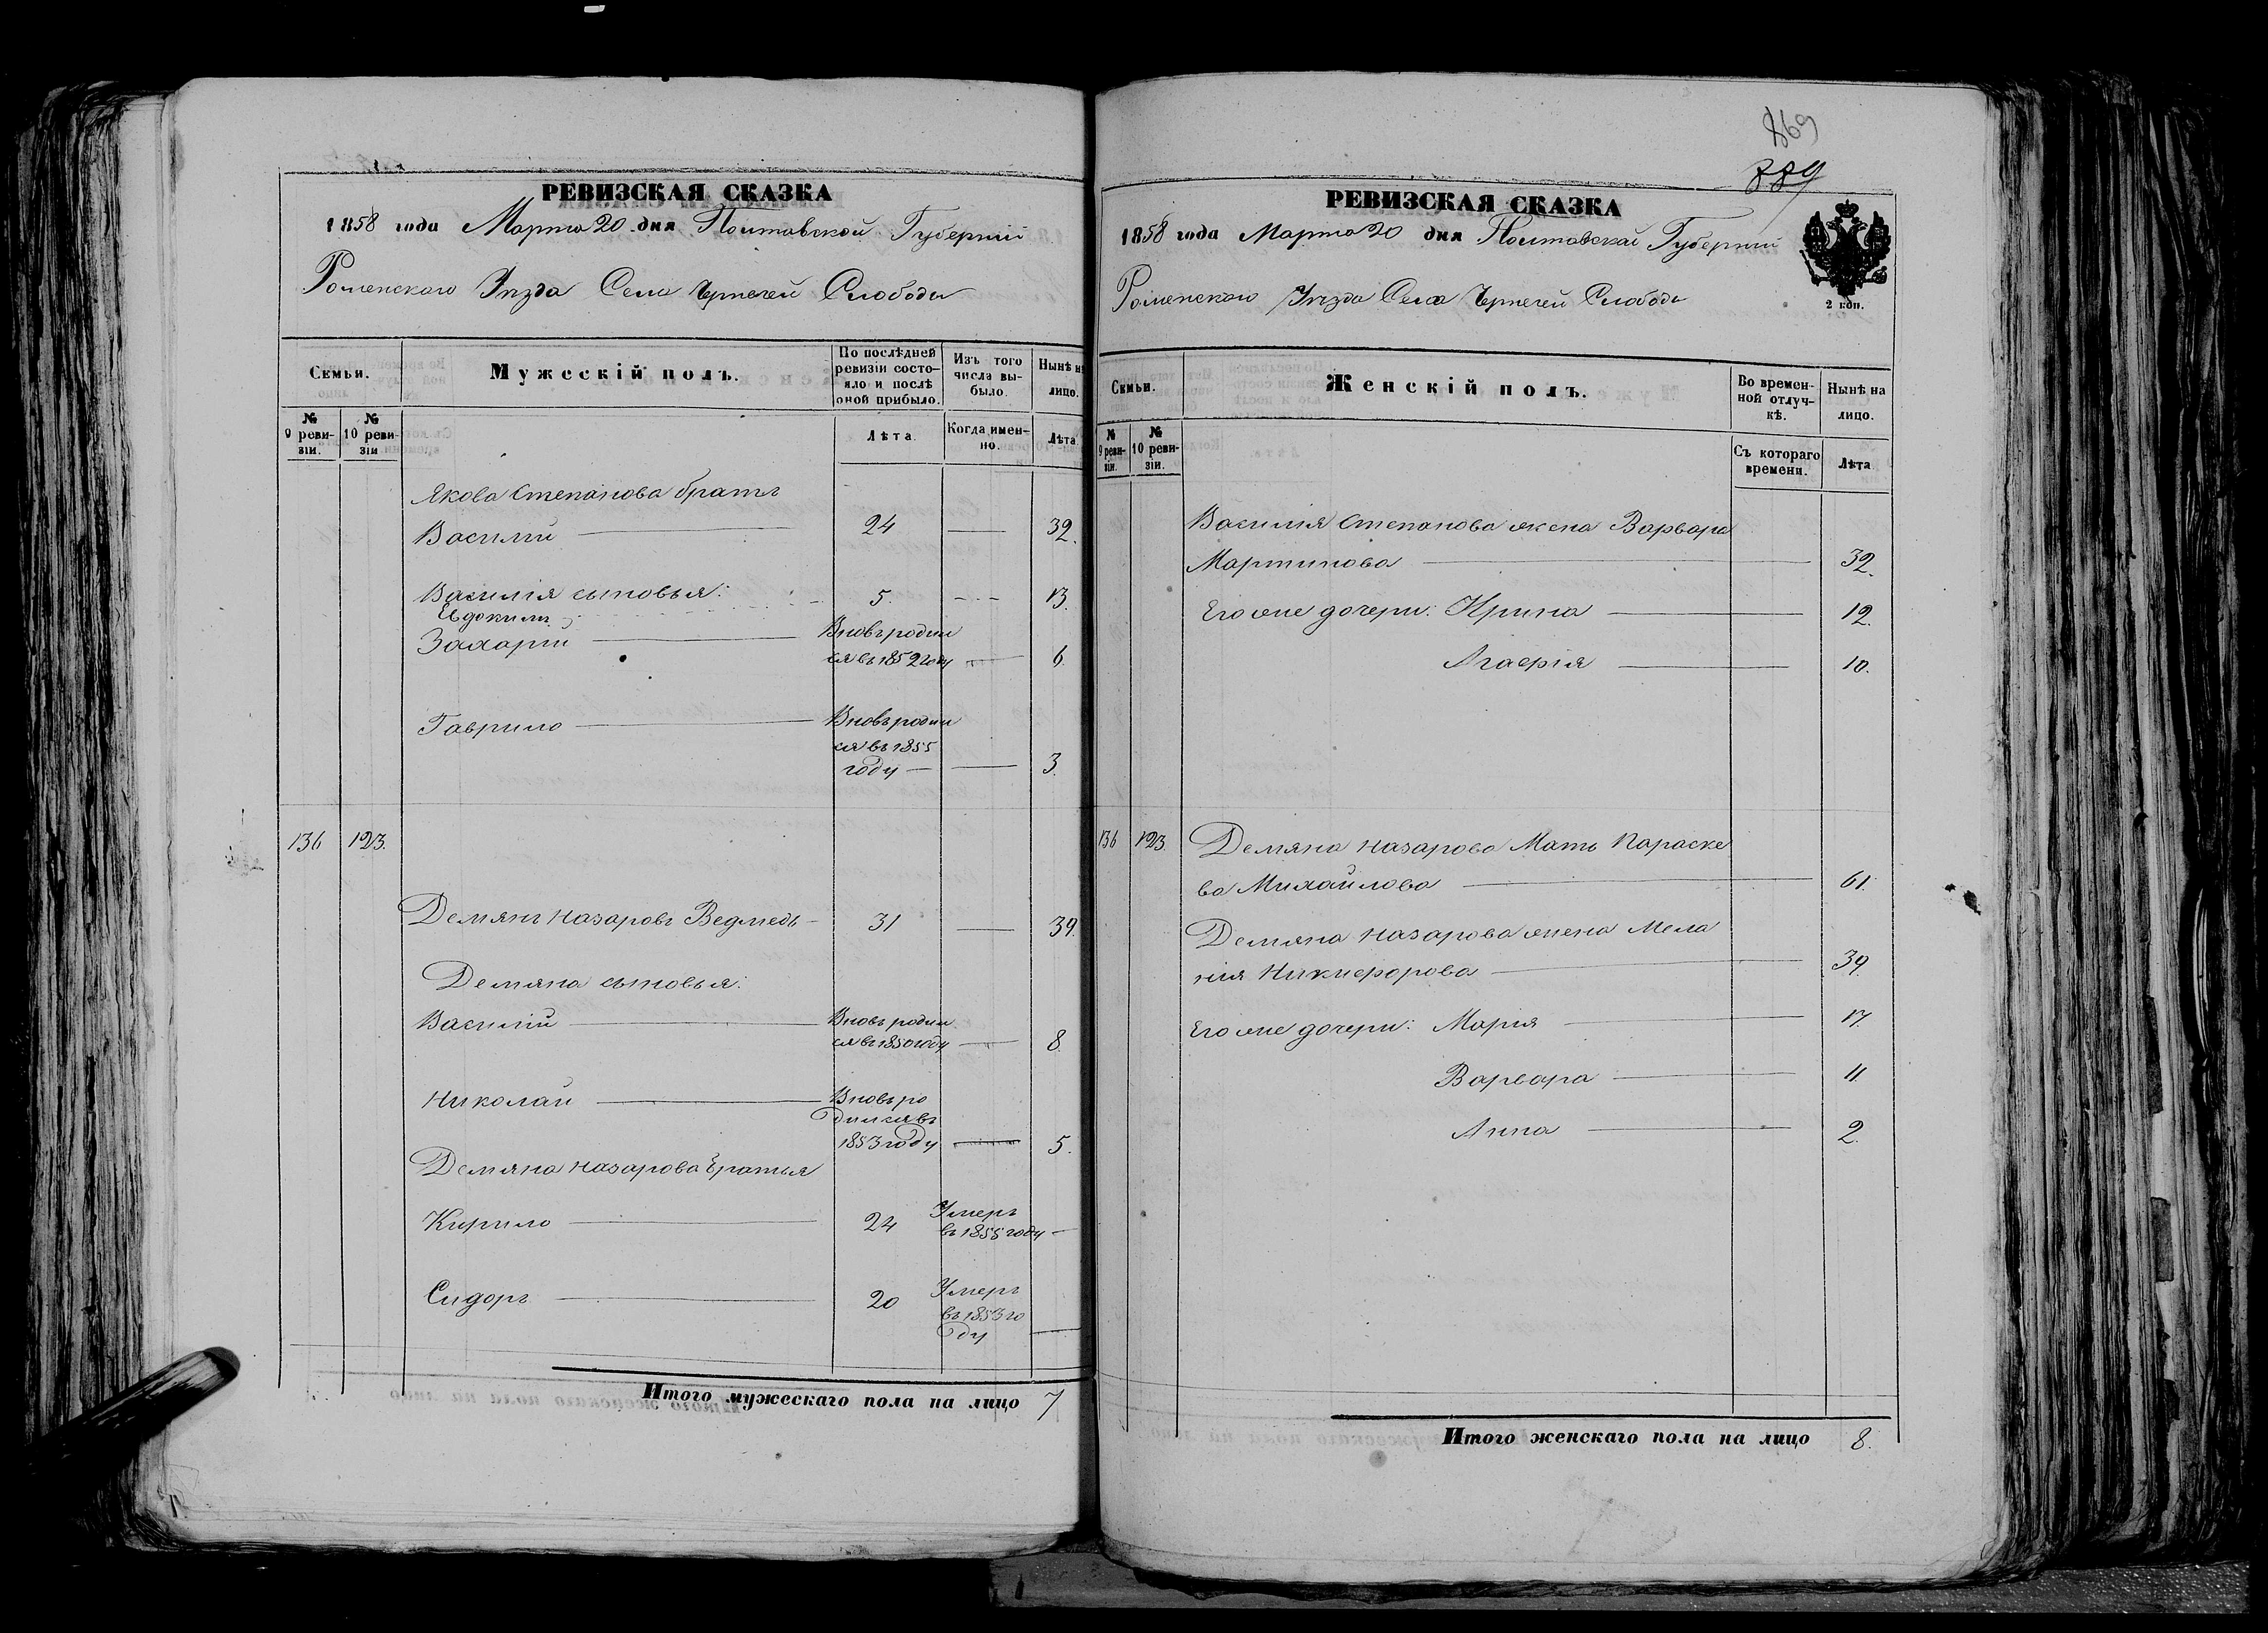 РЕВИЗСКАЯ СКАЗКА
1858 года Марта 20 дня Полтавской Губернии
Роменского Уезда Села Чернечей Слободы
Семьи.
Мужескій полъ.
По послѣдней ревизіи состо-
яло и послѣ
оной прибыло.
Изъ того
числа вы-
было.
Нынѣ на
лицо.
№
9 реви-
зіи.
№
10 реви-
зіи
Лѣта.
Когда имен-
но.
Лѣта
Якова Степанова братъ
Василий 24 32.
Василія сыновья:
Евдокимъ 5. 13.
Захарій Вновь родил
ся въ 1852 году 6.
Гаврило Вновь родил
ся въ 1855
году 3.
136 123.
Демянъ Назаровъ Ведмедь 31 39.
Демяна сыновья:
Василій Вновь родил
ся въ 1850 году 8.
Николай Вновь ро
дился въ
1853 году 5.
Демяна Назарова братья
Кирило 24 Умеръ
въ 1855 году
Сидоръ 20 Умеръ
въ 1853 го
ду
Итого мужескаго пола на лицо 7
869
889
РЕВИЗСКАЯ СКАЗКА
1858 года Марта 20 дня Полтавской Губернии
Роменского Уезда Села Чернечей Слободы
2 коп.
Семьи.
Женскій полъ.
Во времен-
ной отлуч-
кѣ.
Нынѣ на
лицо.
№
9 реви-
зіи.
№
10 реви-
зіи.
Съ котораго
времени.
Лѣта
Василия Степанова жена Варвара
Мартинова 32.
Его же дочери: Ирина 12.
Агафія 10.
136 123. Демяна Назарова Мать Параске
ва Михайлова 61.
Демяна Назарова жена Мела
нія Никифорова 39.
Его же дочери: Мария 17.
Варвара 11.
Анна 2.
Итого женскаго пола на лицо 8.